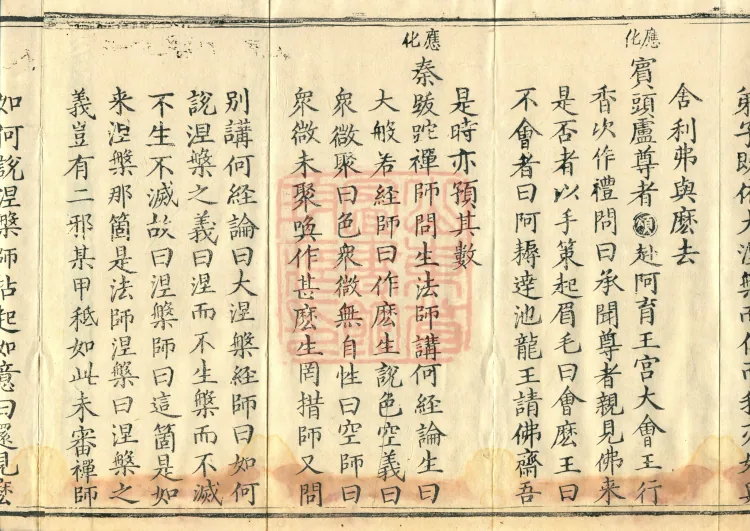 舍利弗與麽去
應化
賓頭盧尊者赴阿育王宮大會王行
香次作禮問曰承聞尊者親見佛來
是否者以手策起眉毛曰會麽王曰
不會者曰阿耨達池龍王請佛齋吾
是時亦預其數
應化
秦跋陀禪師問生法師講何経論生曰
大般若経師曰作麽生說色空義曰
衆微聚曰色衆微無自性曰空師曰
衆微未聚喚作甚麽生罔措師又問
別講何経論曰大涅槃経師曰如何
說涅槃之義曰涅而不生槃而不滅
不生不滅故曰涅槃師曰這箇是如
来涅槃那箇是法師涅槃曰涅槃之
義豈有二邪某甲秪如此未審禪師
如何說涅槃師拈起如意曰還見麽